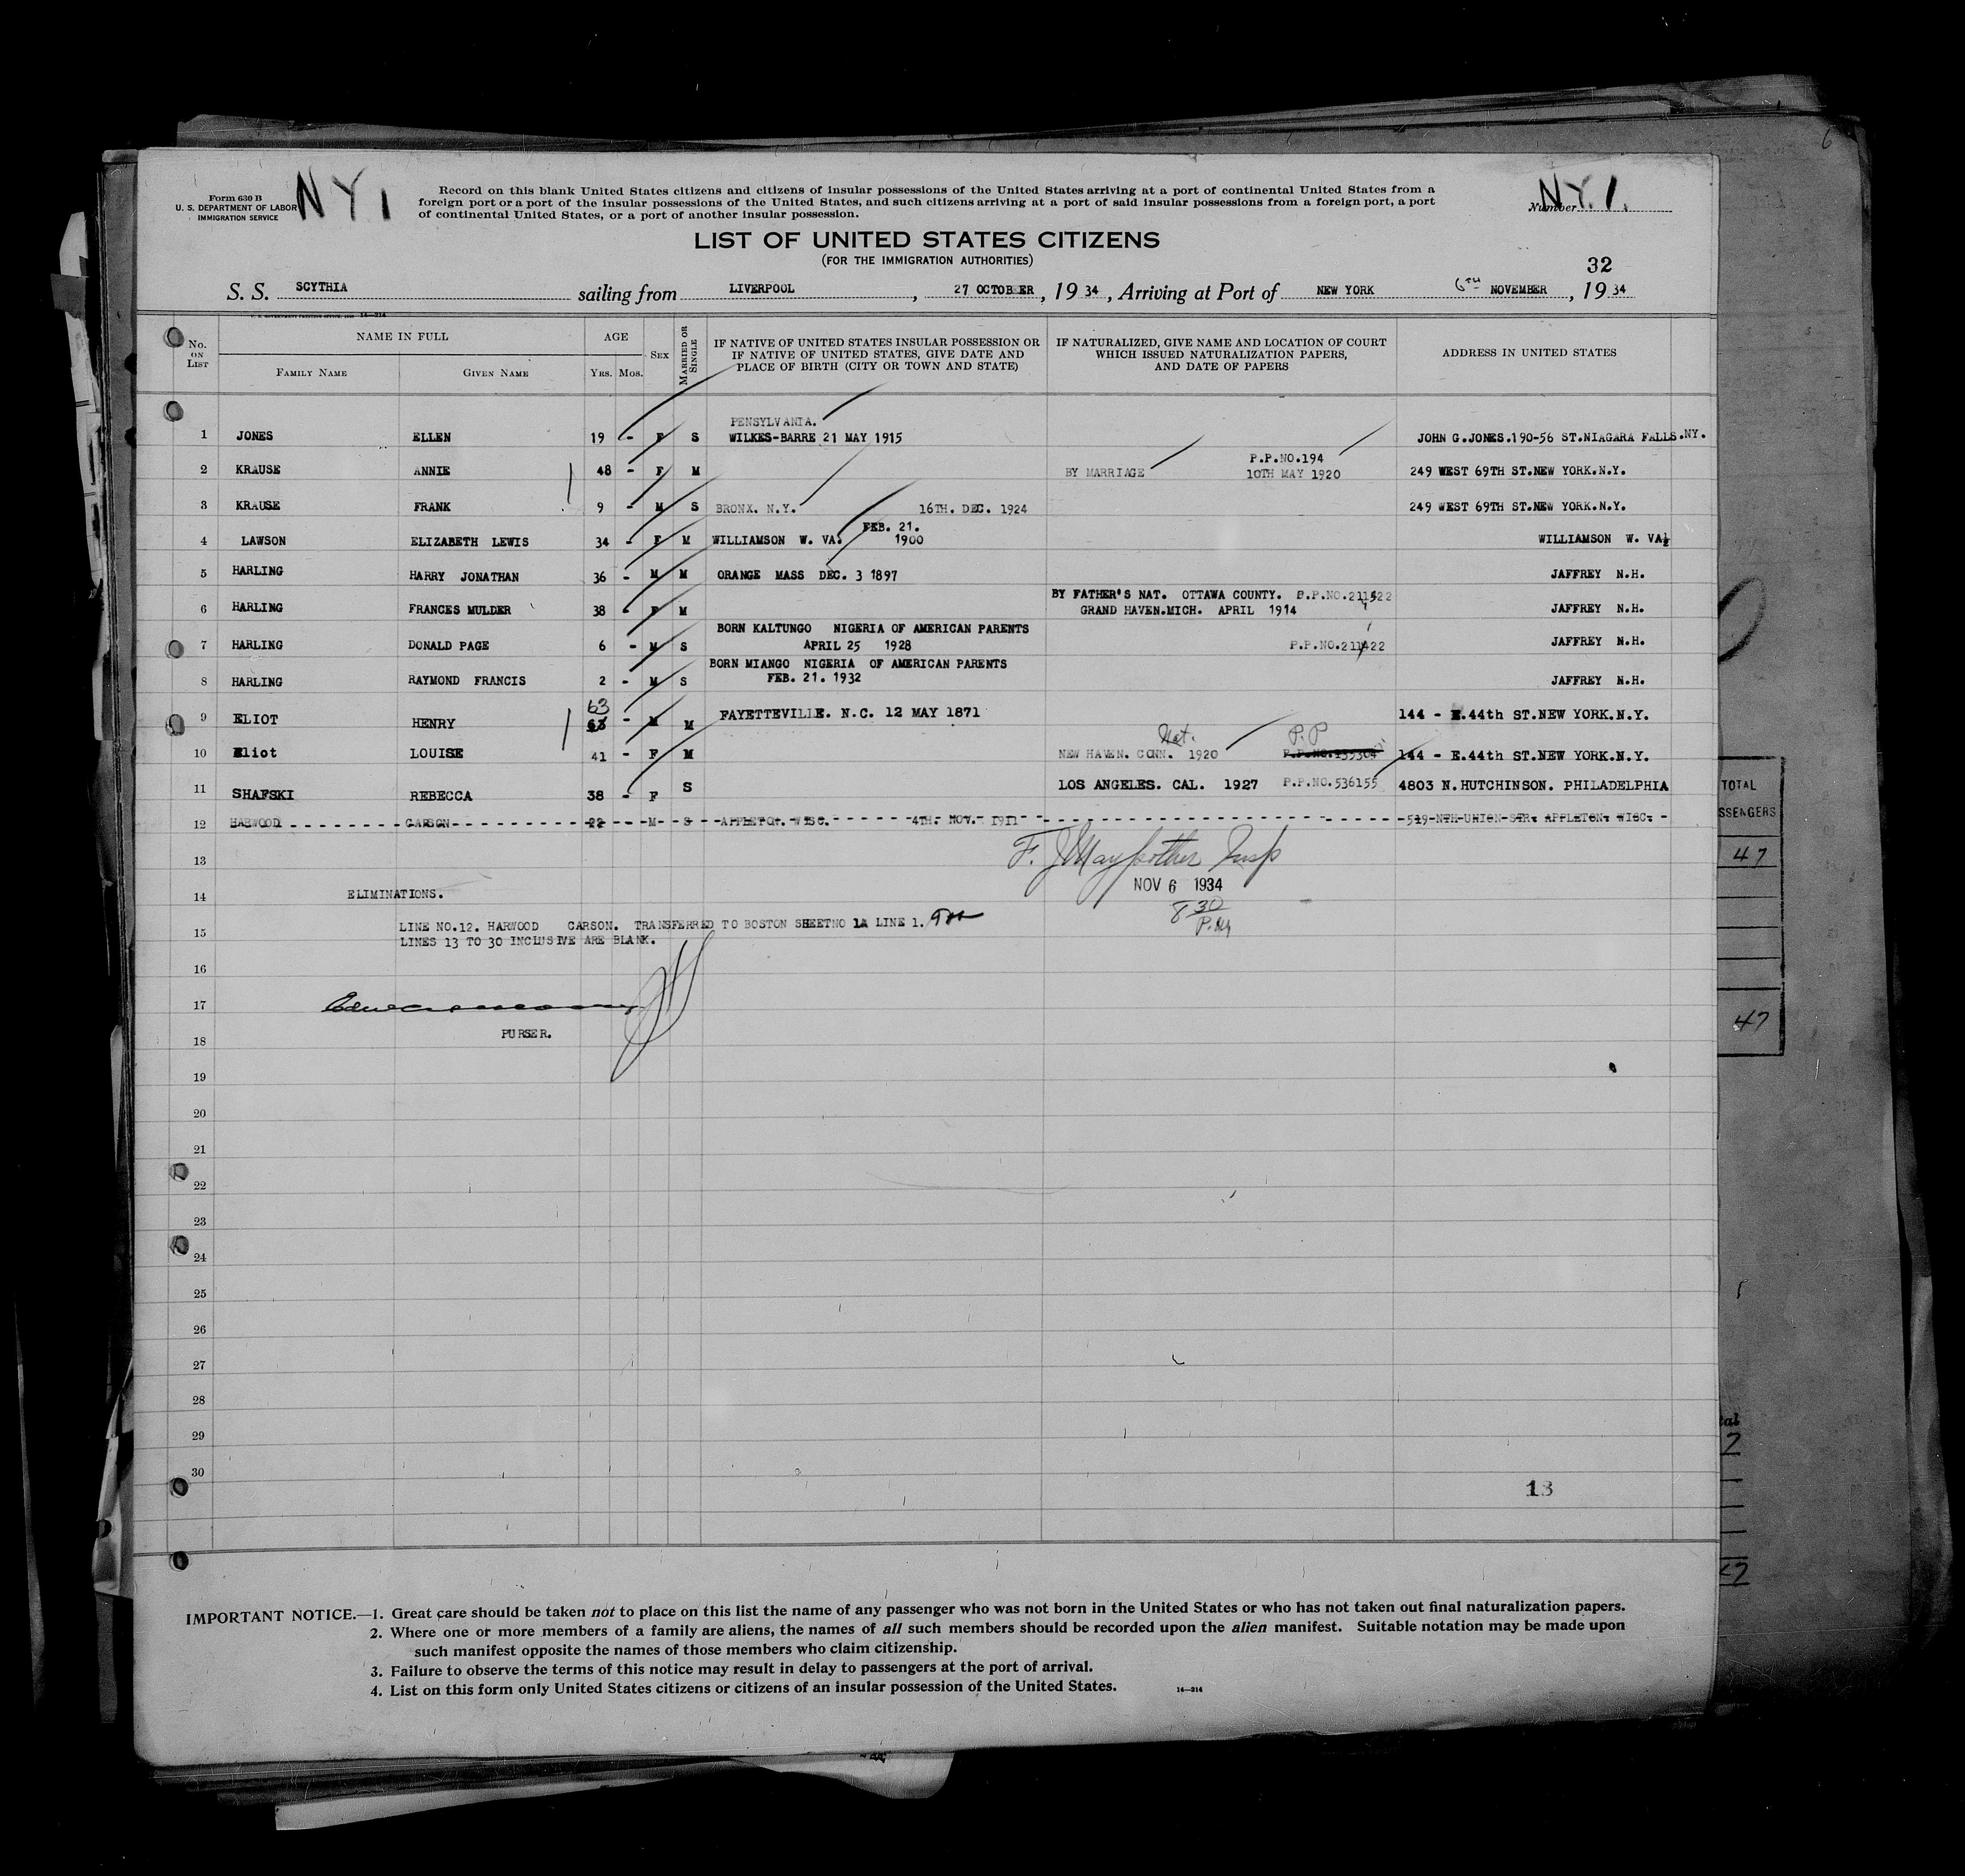 Form 630 B
U. S. DEPARTMENT OF LABOR
IMMIGRATION SERVICE
NY 1
Record on this blank United States citizens and citizens of insular possessions of the United States arriving at a port of continental United States from a
foreign port or a port of the insular possessions of the United States, and such citizens arriving at a port of said insular possessions from a foreign port, a port
of continental United States, or a port of another insular possession.
Number N.Y. 1.
LIST OF UNITED STATES CITIZENS
(FOR THE IMMIGRATION AUTHORITIES)
32
S. S. SCYTHIA sailing from LIVERPOOL, 27 OCTOBER, 19 34, Arriving at Port of NEW YORK 6TH NOVEMBER, 19 34
No. ON LIST
NAME IN FULL
FAMILY NAME GIVEN NAME
AGE
YRS. MOS.
SEX
MARRIED OR SINGLE
IF NATIVE OF UNITED STATES INSULAR POSSESSION OR
IF NATIVE OF UNITED STATES, GIVE DATE AND
PLACE OF BIRTH (CITY OR TOWN AND STATE)
IF NATURALIZED, GIVE NAME AND LOCATION OF COURT
WHICH ISSUED NATURALIZATION PAPERS,
AND DATE OF PAPERS
ADDRESS IN UNITED STATES
PENSYLVANIA.
1 JONES ELLEN 19 - F S WILKES-BARRE 21 MAY 1915 JOHN G.JONES.190-56 ST.NIAGARA FALLS.NY.
P.P.NO.194
2 KRAUSE ANNIE 48 - F M BY MARRIAGE 10TH MAY 1920 249 WEST 69TH ST.NEW YORK.N.Y.
3 KRAUSE FRANK 9 - M S BRONX. N.Y. 16TH. DEC. 1924 249 WEST 69TH ST.NEW YORK.N.Y.
FEB. 21.
4 LAWSON ELIZABETH LEWIS 34 - F M WILLIAMSON W. VA. 1900 WILLIAMSON W. VA.
5 HARLING HARRY JONATHAN 36 - M M ORANGE MASS DEC. 3 1897 JAFFREY N.H.
BY FATHER'S NAT. OTTAWA COUNTY. P.P.NO.211422
6 HARLING FRANCES MULDER 38 - F M GRAND HAVEN.MICH. APRIL 1914 JAFFREY N.H.
BORN KALTUNGO NIGERIA OF AMERICAN PARENTS
7 HARLING DONALD PAGE 6 - M S APRIL 25 1928 P.P.NO.211422 JAFFREY N.H.
BORN MIANGO NIGERIA OF AMERICAN PARENTS
8 HARLING RAYMOND FRANCIS 2 - M S FEB. 21. 1932 JAFFREY N.H.
63
9 ELIOT HENRY 63 - M M FAYETTEVILLE. N.C. 12 MAY 1871 144 - E.44th ST.NEW YORK.N.Y.
Nat. P.P
10 Eliot LOUISE 41 - F M NEW HAVEN. CONN. 1920 144 - E.44th ST.NEW YORK.N.Y.
11 SHAFSKI REBECCA 38 - F S LOS ANGELES. CAL. 1927 P.P.NO.536155 4803 N.HUTCHINSON. PHILADELPHIA
12 HARWOOD CARSON 22 - M - S APPLETON. WISC. 4TH. NOV. 1911 519-NTH-UNION-STR. APPLETON. WISC.
13
14 ELIMINATIONS. NOV 6 1934
8 30
P.M
LINE NO.12. HARWOOD CARSON. TRANSFERRED TO BOSTON SHEETNO 1A LINE 1.
15 LINES 13 TO 30 INCLUSIVE ARE BLANK.
16
17
PURSER.
18
19
20
21
22
23
24
25
26
27
28
29
30
13
IMPORTANT NOTICE.—1. Great care should be taken not to place on this list the name of any passenger who was not born in the United States or who has not taken out final naturalization papers.
2. Where one or more members of a family are aliens, the names of all such members should be recorded upon the alien manifest. Suitable notation may be made upon
such manifest opposite the names of those members who claim citizenship.
3. Failure to observe the terms of this notice may result in delay to passengers at the port of arrival.
4. List on this form only United States citizens or citizens of an insular possession of the United States.
14—214
TOTAL
47
47
6